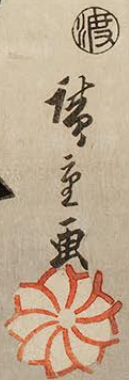 渡
廣重画